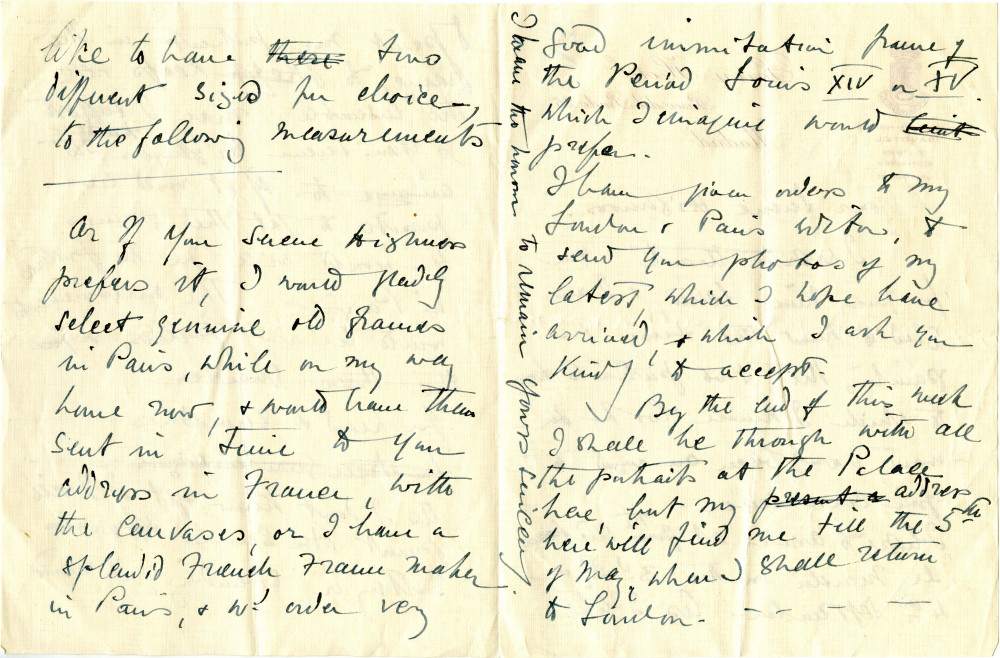 like to have there two
different sized for choice,
to the following measurements
Or If Your Serene Highness
prefers it, I would gladly
select genuine old frames
in Paris, while on my way
home now, & would have them
sent in Time to You
address in France, with
the canvases, or I have a
splendid French Frame maker
in Paris, & wd order very
good immitation frame of
the Period Louis XIV or XV.
which I imagine would
prefer.
I have given orders to my
London & Paris editors, to
send You photos of my
latest, which I hope have
arrived, & which I ask You
Kindly to accept.
By the end of this week
I shall be through with all
the portraits at the Palace
here, but my present a address
here will find me till the 5th
of May, when I shall return
to London.
I have the honour to remain Yours sincerely